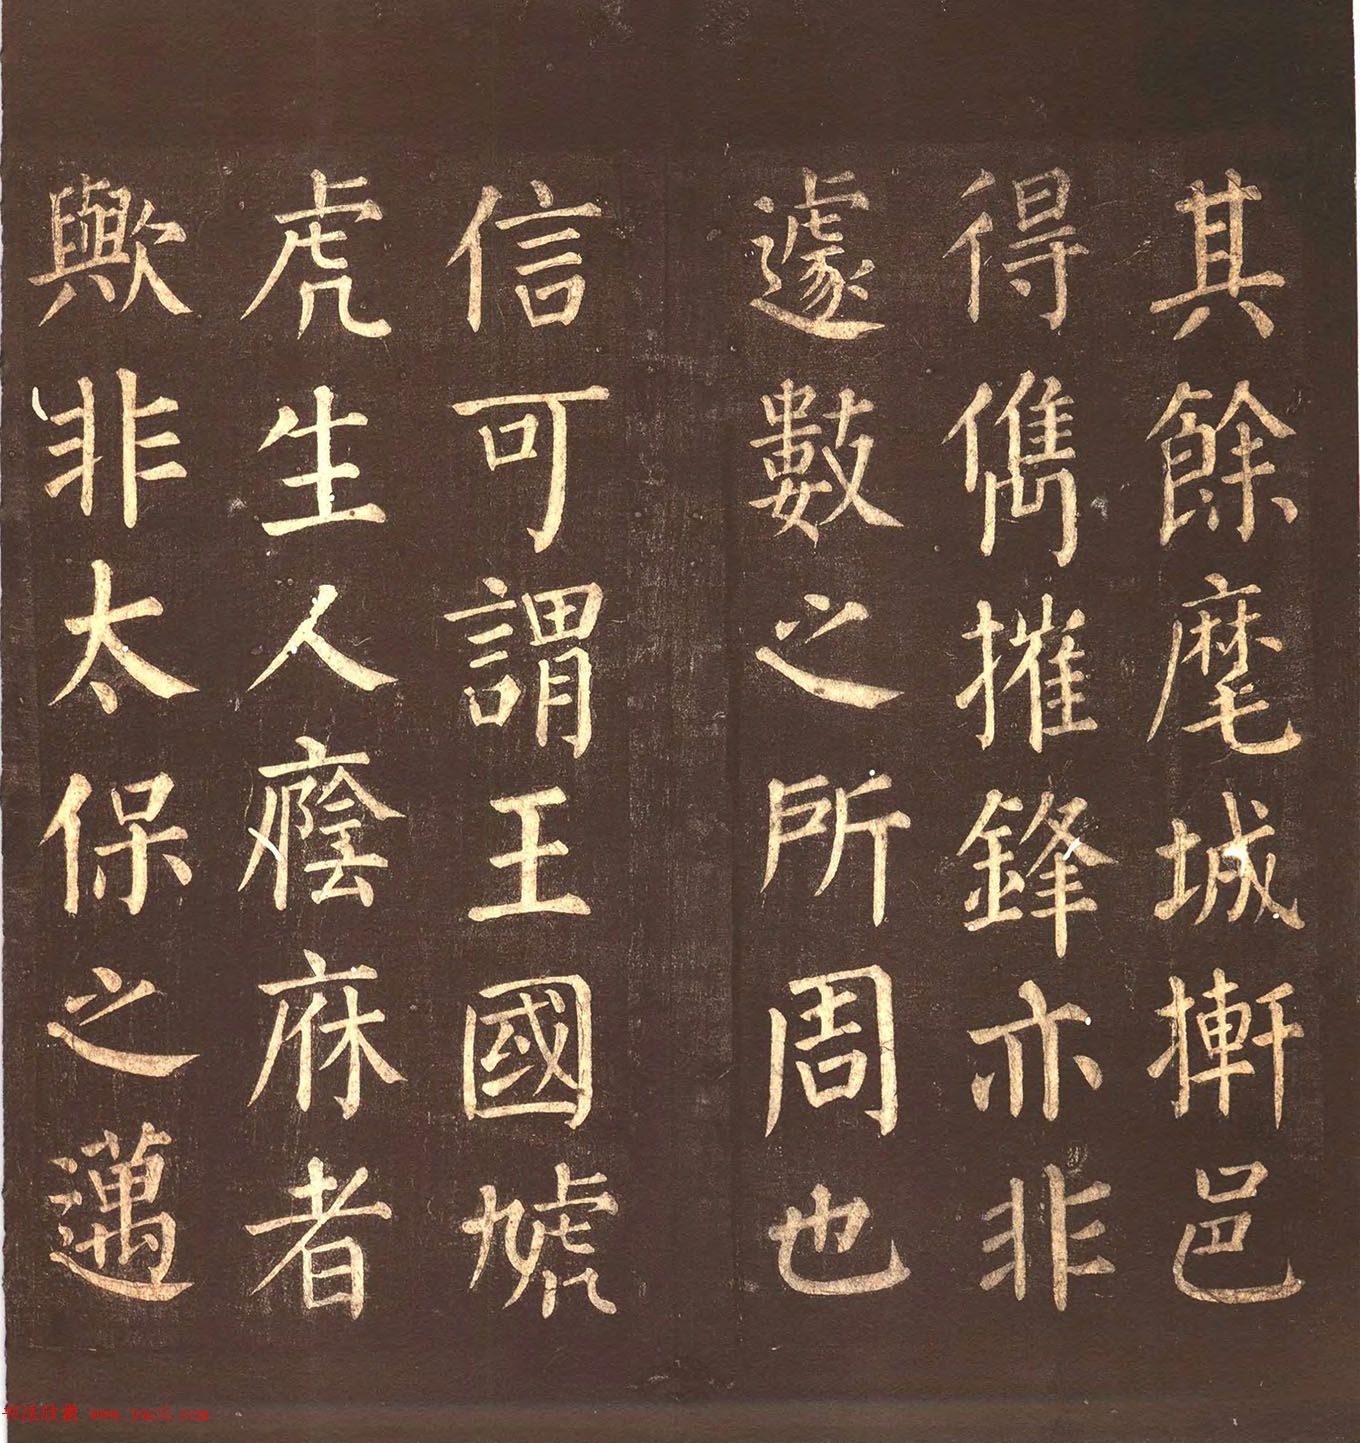 其餘麾城摲邑
得儁摧鋒亦非
遽數之所周也
信可謂王國虓
虎生人廕庥者
歟非太保之邁
书法欣赏 www.yac8.com